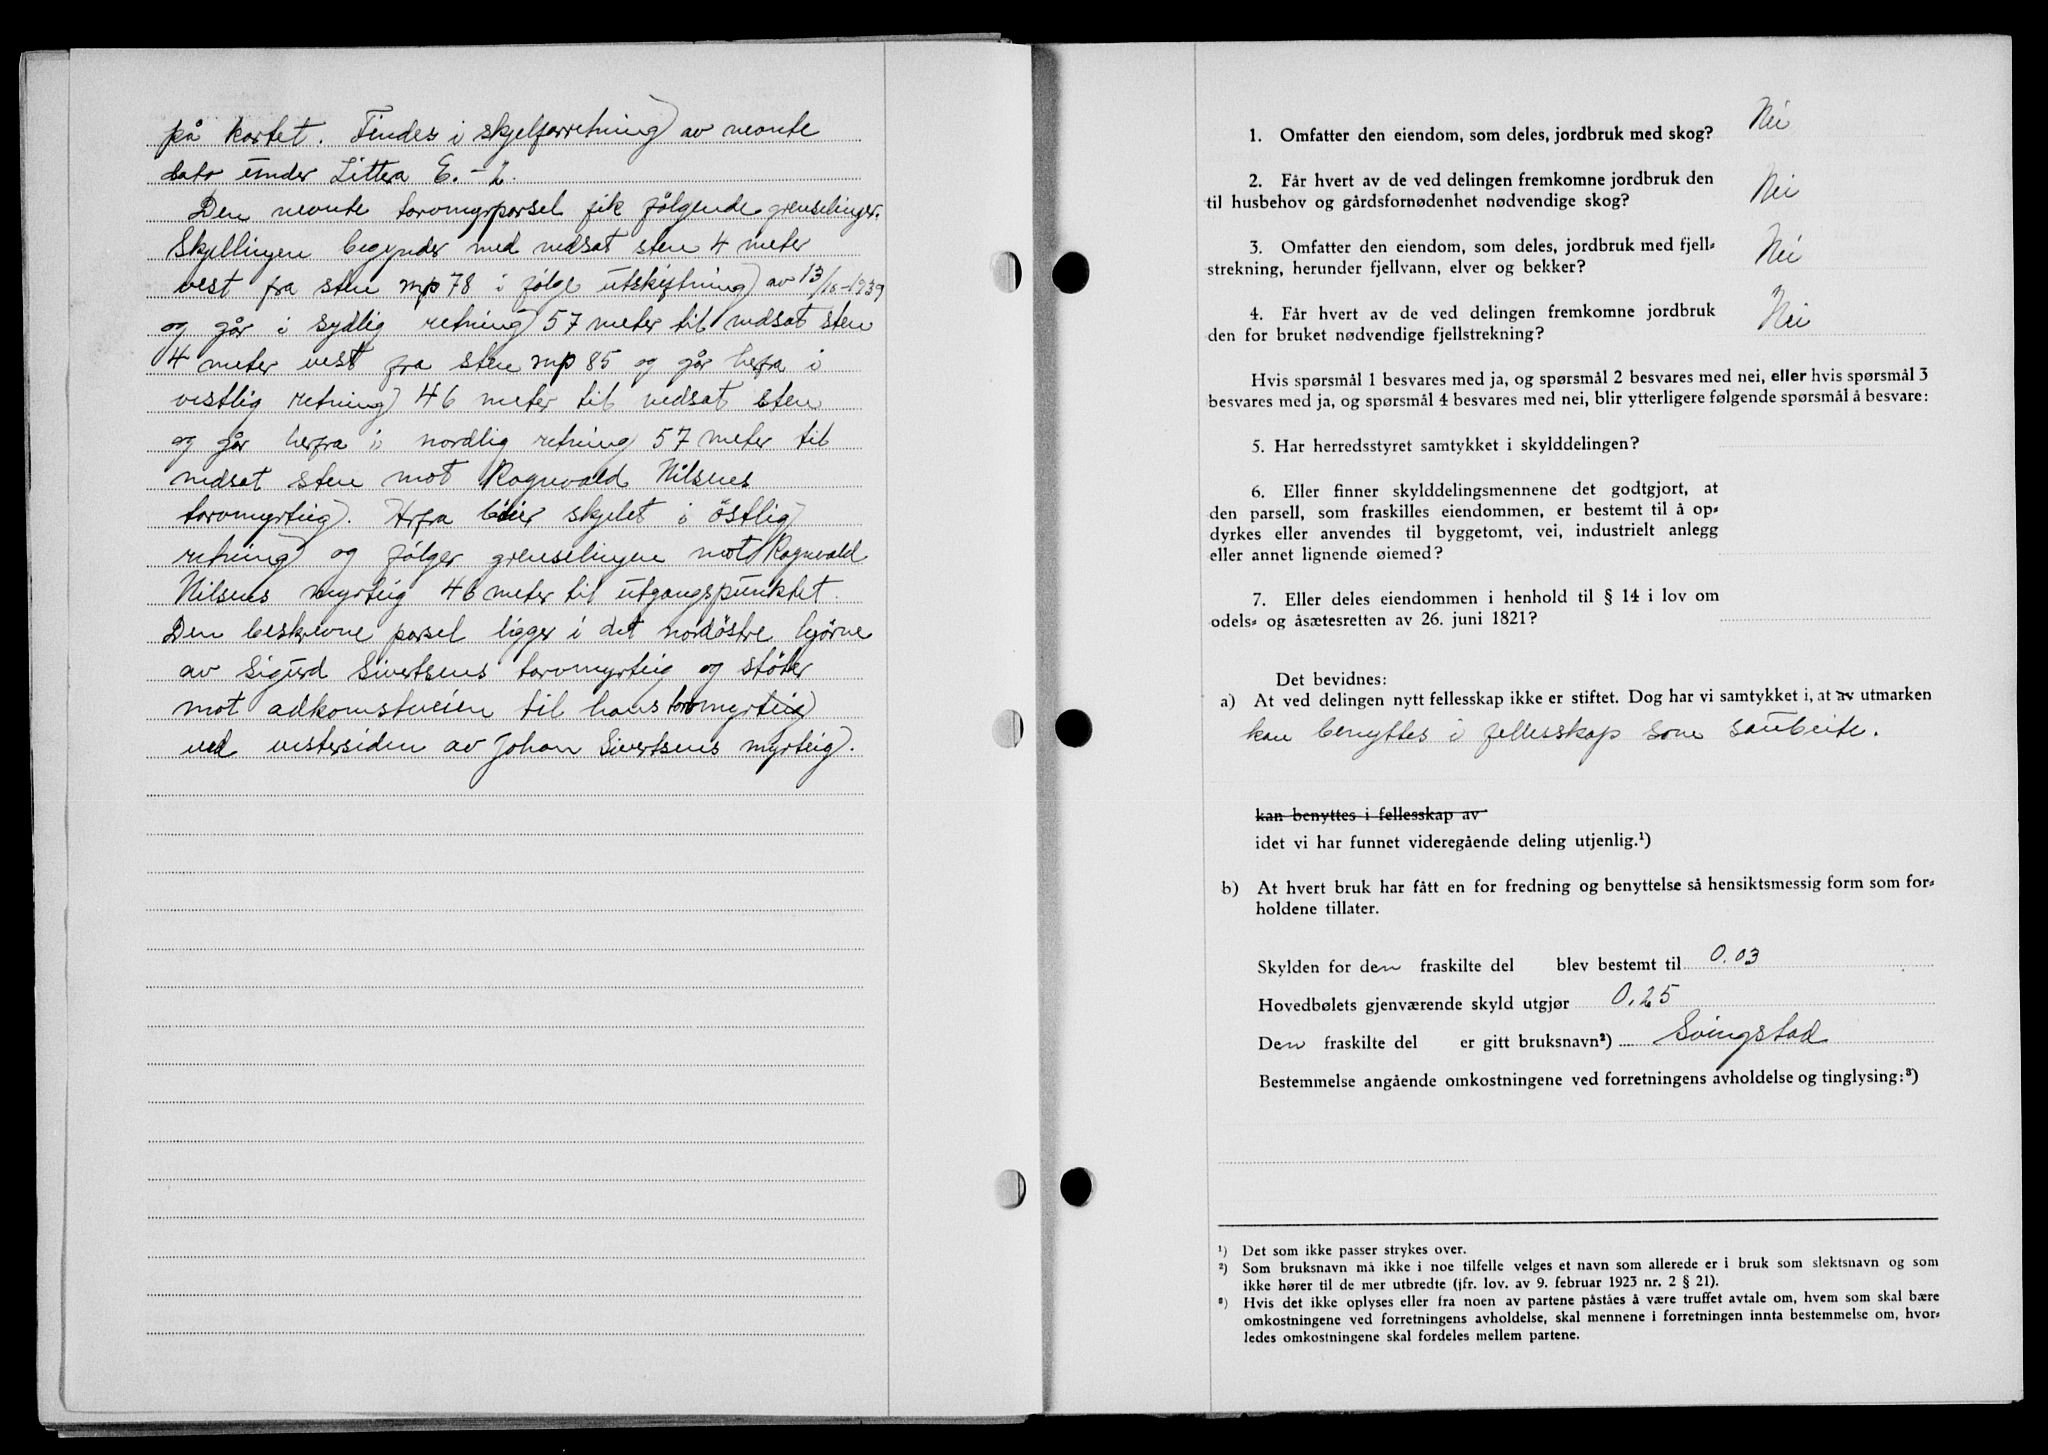 på kartet. Findes i skjelforretning av nevnte
dato under Littera E.-2.
Den nevnte torvmyrparsel fik følgende grenselinjer.
Skjellinjen begynder med nedsat sten 4 meter
vest fra sten mp 78 i følge utskiftning av 13/10-1939
og går i sydlig retning 57 meter til nedsat sten
4 meter vest fra sten mp 85 og går herfra i
vestlig retning 46 meter til nedsat sten
og går herfra i nordlig retning 57 meter til
nedsat sten mot Ragnvald Nilsens
torvmyrteig. Herfra bøier skjelet i östlig
retning og følger grenselinjen mot Ragnvald
Nilsens myrteig 46 meter til utgangspunktet.
Den beskrevne parsel ligger i det nordöstre hjörne
av Sigurd Sivertsens torvmyrteig og støter
mot adkomstveien til hans torvmyrteig
ved vestersiden av Johan Sivertsens myrteig.
1. Omfatter den eiendom, som deles, jordbruk med skog? Nei
2. Får hvert av de ved delingen fremkomne jordbruk den
til husbehov og gårdsfornødenhet nødvendige skog? Nei
3. Omfatter den eiendom, som deles, jordbruk med fjell-
strekning, herunder fjellvann, elver og bekker? Nei
4. Får hvert av de ved delingen fremkomne jordbruk
den for bruket nødvendige fjellstrekning? Nei
Hvis spørsmål 1 besvares med ja, og spørsmål 2 besvares med nei, eller hvis spørsmål 3
besvares med ja, og spørsmål 4 besvares med nei, blir ytterligere følgende spørsmål å besvare:
5. Har herredsstyret samtykket i skylddelingen?
6. Eller finner skylddelingsmennene det godtgjort, at
den parsell, som fraskilles eiendommen, er bestemt til å op-
dyrkes eller anvendes til byggetomt, vei, industrielt anlegg
eller annet lignende øiemed?
7. Eller deles eiendommen i henhold til § 14 i lov om
odels- og åsætesretten av 26. juni 1821?
Det bevidnes:
a) At ved delingen nytt fellesskap ikke er stiftet. Dog har vi samtykket i, at av utmarken
kan benyttes i fellesskap som saubeite.
kan benyttes i fellesskap av
idet vi har funnet videregående deling utjenlig.¹)
b) At hvert bruk har fått en for fredning og benyttelse så hensiktsmessig form som for-
holdene tillater.
Skylden for den fraskilte del blev bestemt til 0.03
Hovedbølets gjenværende skyld utgjør 0,25
Den fraskilte del er gitt bruksnavn²) Svingstad
Bestemmelse angående omkostningene ved forretningens avholdelse og tinglysing:³)
¹) Det som ikke passer strykes over.
²) Som bruksnavn må ikke i noe tilfelle velges et navn som allerede er i bruk som slektsnavn og som
ikke hører til de mer utbredte (jfr. lov. av 9. februar 1923 nr. 2 § 21).
³) Hvis det ikke oplyses eller fra noen av partene påståes å være truffet avtale om, hvem som skal bære
omkostningene ved forretningens avholdelse, skal mennene i forretningen innta bestemmelse om, hvor-
ledes omkostningene skal fordeles mellem partene.